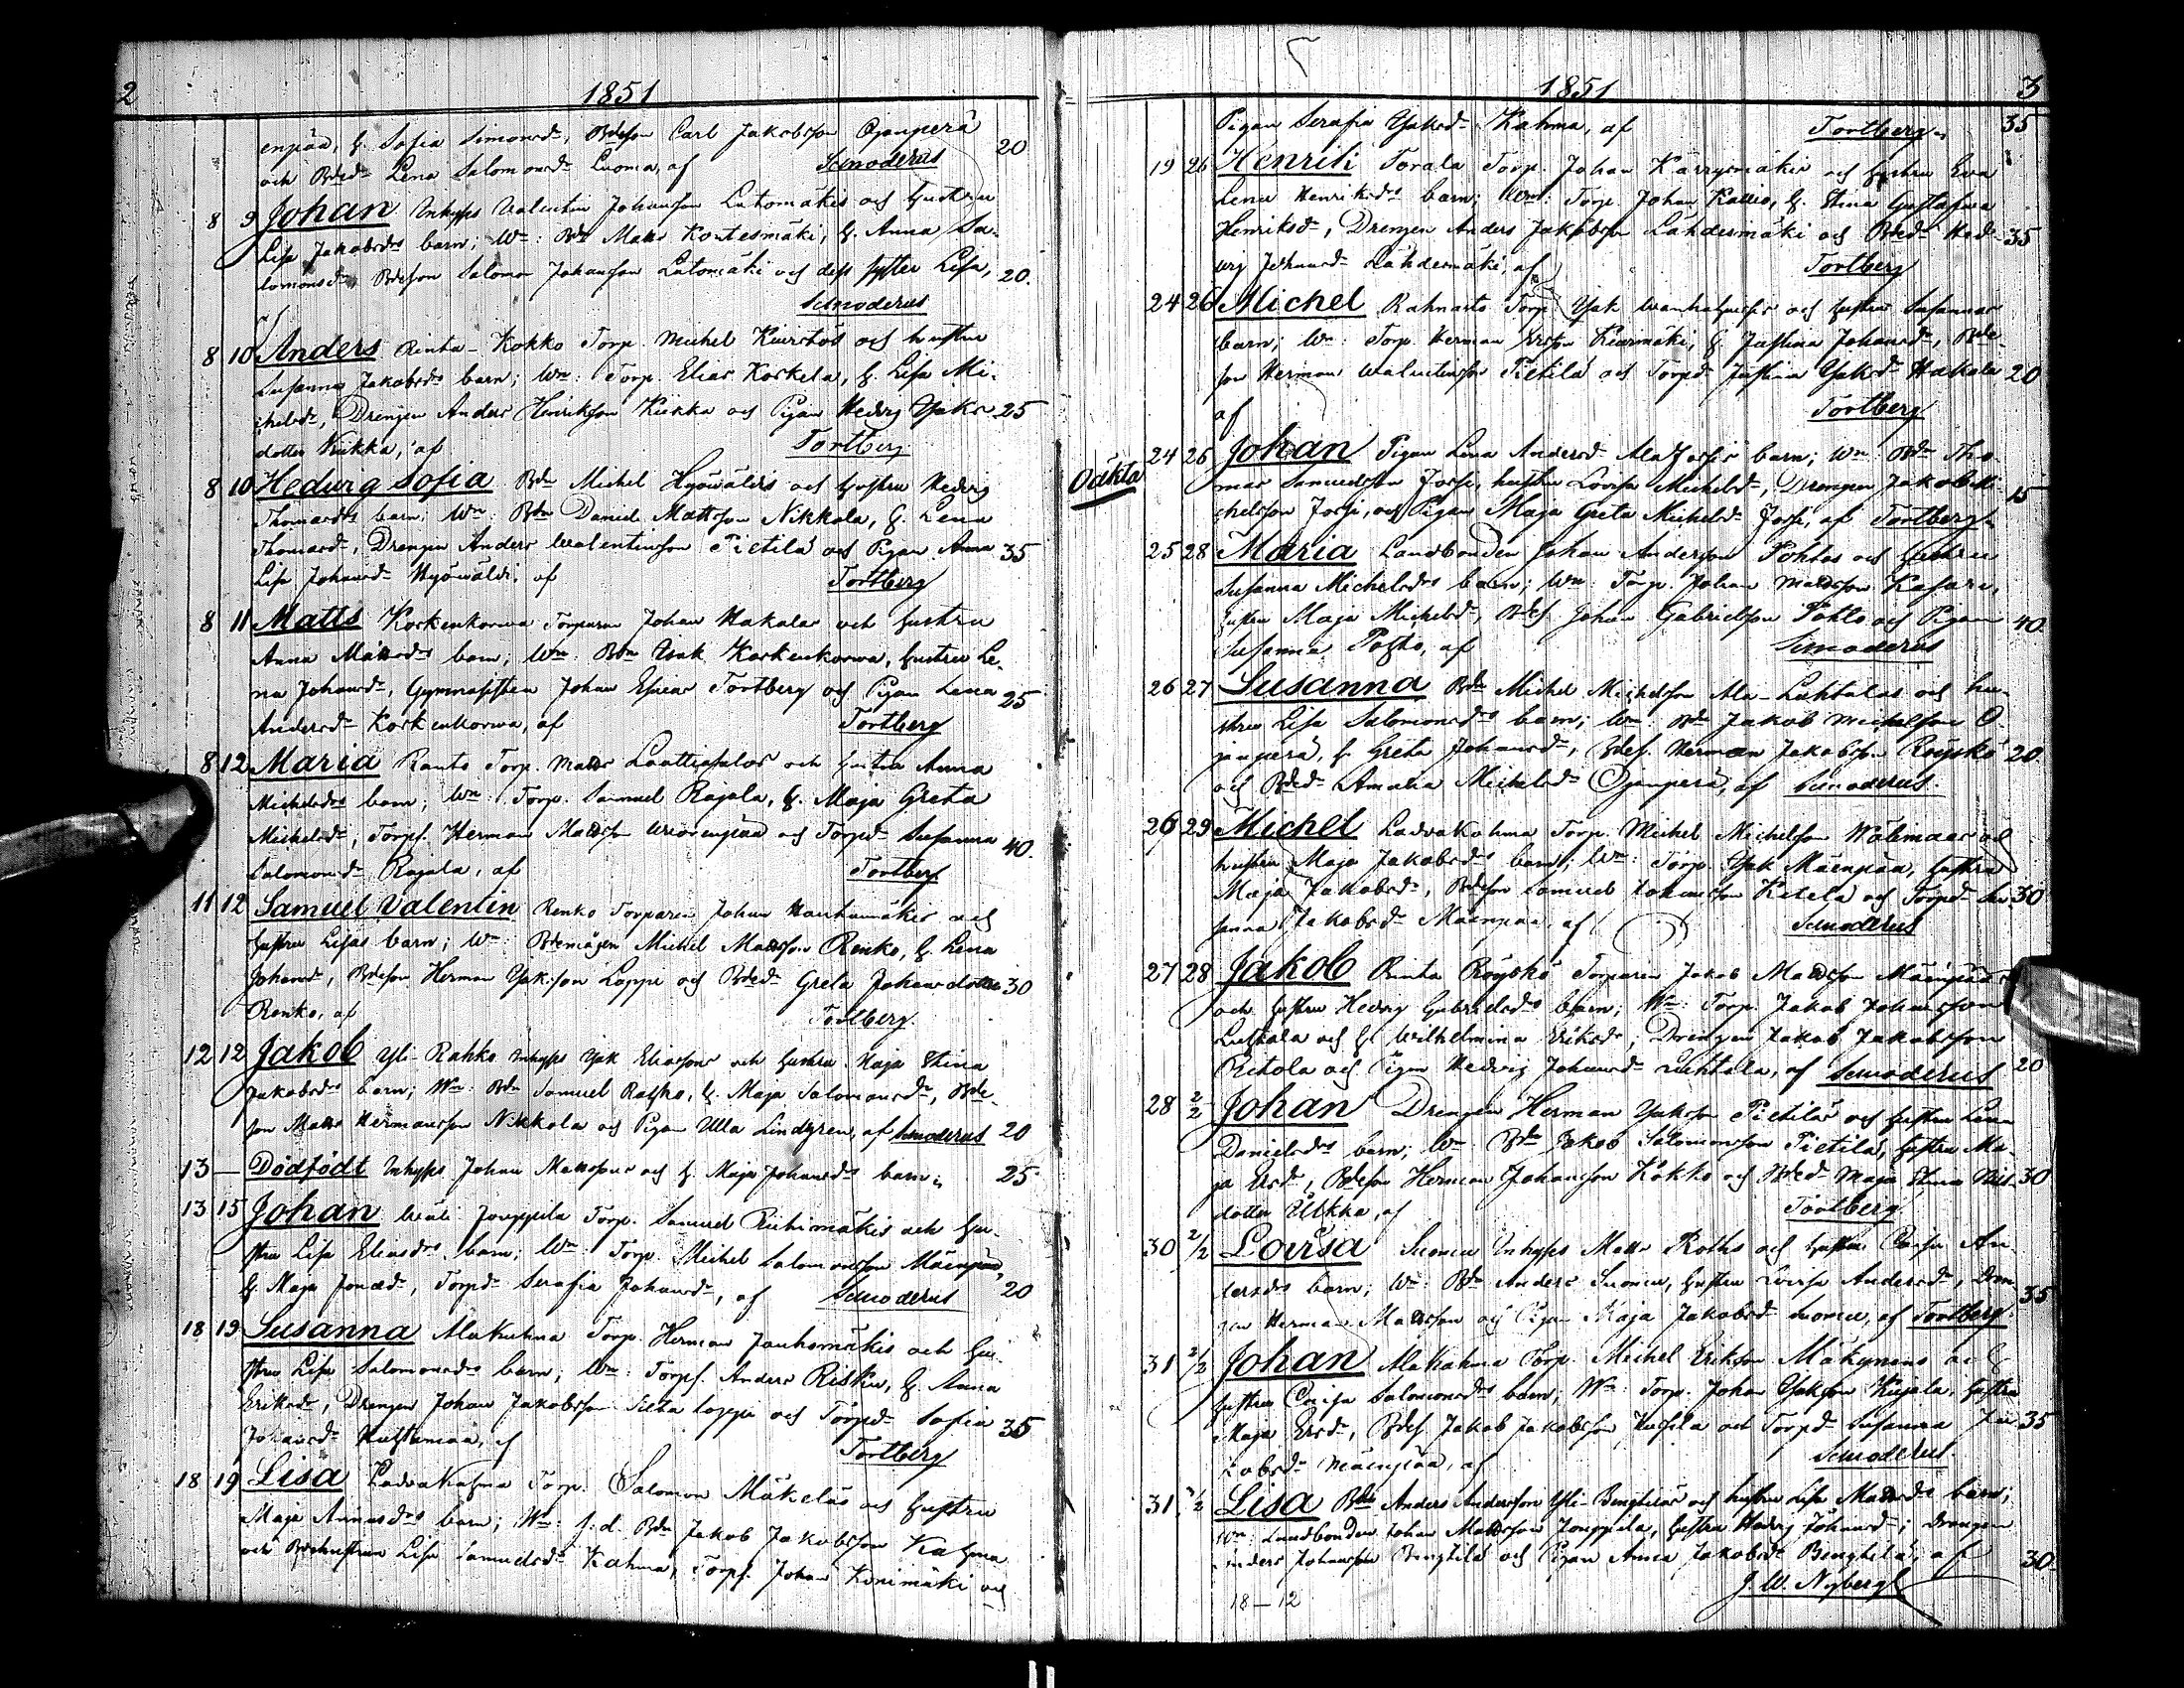 2 1851
enpää, h. Sofia Simonsd., Bdeson Carl Jakobsson Ojanperä 20
och Bded. Lena Salomonsd. Luoma, af Simoderus
8 9 Johan Inhyses Valentin Johansson Latomäkis och hustru
Lisa Jakobsdrs barn; Wn: Bdn Matts Kontesmäki, h. Anna Sa-
lomonsd. Bdeson Salomon Johansson Latomäki och dess syster Lisa, 20.
af Simoderus
8 10 Anders Rinta-Kokko Torp. Michel och hustru
Susanna Jakobsdrs barn; Wn: Torp. Elias Korkela, h. Lisa Mi-
chelsd., Drengen Anders Henriksson Kiikka och Pigan Hedvig Isaks 25
dotter Kiikka, af Tortberg
8 10 Hedvig Sofia Bdn Michel Hyöwältis och hustru Hedvig
Thomasdrs barn; Wn: Bdn Daniel Mattsson Nikkola, h. Lena
Thomasd., Drengen Anders Walentinsson Pietilä och Pigan Anna 35
Lisa Johansd. Hyöwälti, af Tortberg
8 11 Matts Korkenkorwa Torparen Johan Hakalas och hustru
Anna Mattsdrs barn; Wn: Bdn Isak Korkenkorwa, hustru Le-
na Johansd., Gymnasisten Johan Esaias Tortberg och Pigan Lena 25
Andersd. Korkenkorwa, af Tortberg
8 12 Maria Ranto Torp. Matts och hustru Anna
Michelsdrs barn; Wn: Torp. Samuel Rajala, h. Maja Greta
Michelsd., Torps. Herman Mattsson och Torpd. Susanna 40.
Salomonsd. Rajala, af Tortberg
11 12 Samuel Valentin Renko Torparen Johan Hautamäkis och
hustru Lisas barn; Wn: Bdemågen Michel Mattsson Renko, h. Lena
Johansd., Bdeson Herman Isaksson Loppi och Bded. Greta Johansdotter 30
Renko, af Tortberg.
12 12 Jakob Yli-Rahko Inhyses Isak Eliassons och hustru Maja Stina
Jakobsdrs barn; Wn: Bdn Samuel Rahko, h. Maja Salomonsd., Bde-
son Matts Hermansson Nikkola och Pigan Ulla Lindgren, af Simoderus 20
13 — Dödfödt Inhyses Johan Mattssons och h. Maja Johansdrs barn; 25
13 15 Johan Wäli Jouppila Torp. Samuel Riihimäkis och hu-
stru Lisa Eliasdrs barn; Wn: Torp. Michel Salomonsson Mäenpää,
h. Maja Jonasd., Torpd. Serafia Johansd., af Simoderus 20
18 19 Susanna Alakuhna Torp. Herman Jouhomäkis och hu-
stru Lisa Salomonsdrs barn; Wn: Torps. Anders Risku, h. Anna
Eriksd., Drengen Johan Jakobsson loppi och Torpd. Sofia 35
Johansd. af Tortberg
18 19 Lisa Ladvakahma Torp. Salomon Mäkeläs och hustru
Maja Annasdrs barn; Wn: f:d. Bdn Jakob Jakobsson Kahma
och Bdehustrun Lisa Samuelsd. Kahma, Torps. Johan Konimäki och
1851 3
Pigan Serafia Isaksd. Kahma, af Tortberg 35
19 26 Henrik Torala Torp. Johan Karrysmäkis och hustru Eva
Lena Henriksdrs barn; Wn: Torp. Johan Kallio, h. Stina Gustafva
Henriksd., Drengen Anders Jakobsson Lähdesmäki och Bded. Hed- 35
vig Johansd. Lähdesmäki, af Tortberg
24 26 Michel Rahnasto Torp. Isak och hustru Susannas
barn; Wn: Torp. Herman Ersson h. Justina Johansd., Bde-
son Herman Walentinsson Pietilä och Torpd. Justina Isaksd. Hakala 20
af Tortberg
Oäkta
24 26 Johan Pigan Lena Andersd. Ala Jossis barn; Wn: Bdn Tho-
mas Samuelsson Jossi, hustru Lovisa Michelsd., Drengen Jakob Mi- 15
chelsson Jossi, och Pigan Maja Greta Michelsd. Jossi, af Tortberg
25 28 Maria Landbonden Johan Andersson Pohtos och hustru
Susanna Michelsdrs barn; Wn: Torp. Johan Mattsson Kasari,
hustru Maja Michelsd., Bdes. Johan Gabrielsson Pohto och Pigan 40.
Susanna Pohto, af Simoderus
26 27 Susanna Bdn Michel Michelsson Ala-Luhtalas och hu-
stru Lisa Salomonsdrs barn; Wn: Bdn Jakob Michelsson O-
janperä, h. Greta Johansd., Bdes. Herman Jakobsson Röyskö 20
och Bded. Amalia Michelsd. Ojanperä, af Simoderus.
26 29 Michel Ladvakahma Torp. Michel Michelsson Wälimaas och
hustru Maja Jakobsdrs barn; Wn: Torp. Isak Mäenpää, hustru
Maja Jakobsd., Bdeson Samuel Johansson Ketela och Torpd. Su- 30
sanna Jakobsd. Mäenpää, af Simoderus
27 28 Jakob Rinta Röyskö Torparen Jakob Mattsson Mäenpääs
och hustru Hedvig Gabrielsdrs barn; Wn: Torp. Jakob Johansson
Luhtala och h. Wilhelmina Eriksd., Drengen Jakob Jakobsson
Ritola och Pigan Hedvig Johansd. Luhtala, af Simoderus 20
28 2/2 Johan Drengen Herman Isaksson Pietiläs och hustru Lena
Danielsdrs barn; Wn: Bdn Jakob Salomonsson Pietilä, hustru Ma-
ja Ersd., Bdeson Herman Johansson Kokko och Bded. Maja Stina 30
dotter Ulkka, af Tortberg.
30 2/2 Lovisa Luomu Inhyses Matts Roths och hustru Caisa An-
dersdrs barn; Wn: Bdn Anders Luoma, hustru Lovisa Andersd., Dren- 35
gen Herman Mattsson och Pigan Maja Jakobsd. Luoma, af Tortberg.
31 2/2 Johan Alakahma Torp. Michel Eriksson Mäkynens och
hustru Caisa Salomonsdrs barn; Wn: Torp. Johan Isaksson Kujala, hustru
Maja Ersd., Bdes. Jakob Jakobsson och Torpd. Susanna Ja- 35
kobsd. Mäenpää, af Simoderus.
31. 2/2 Lisa Bdn Anders Andersson Yli-Bengtiläs och hustru Lisa Mattsdrs barn;
Wn: Landbonden Johan Mattsson Jouppila, hustru Hedvig Johansd.; Drengen
Anders Johansson Bengtilä och Pigan Anna Jakobsd. Bengtilä, af 30
J. W. Nyberg
18—12